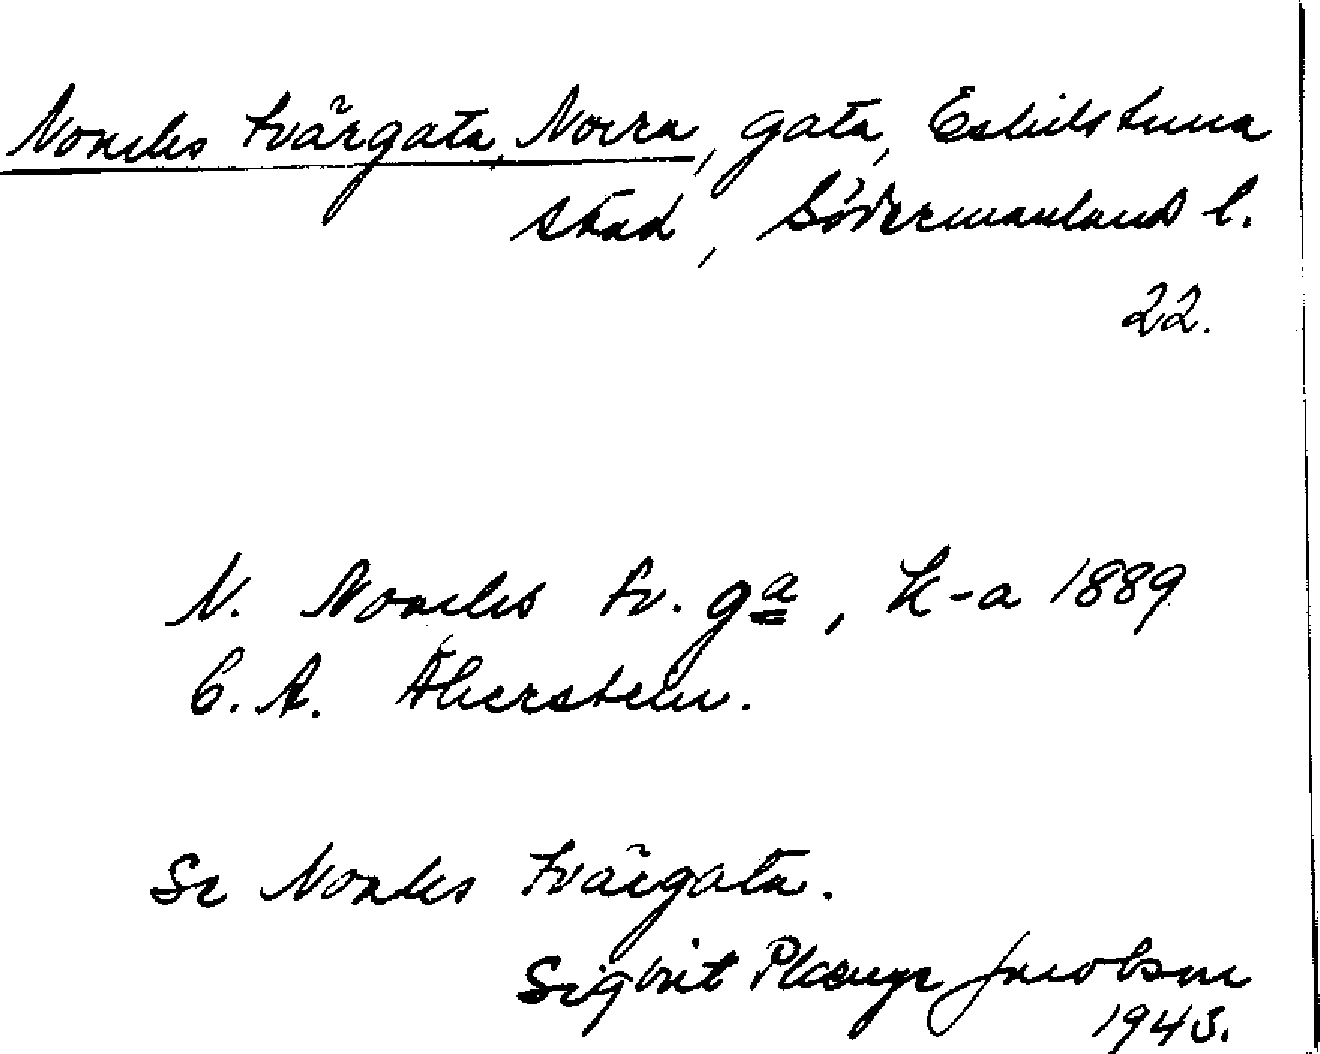 Nordes tvärgata, Norra, gata, Eskilstuna
stad, Södermanlands l.
22.
N. Nordes tv. ga, K-a 1889
C. A. Åberstein.
Se Nordes tvärgata.
Sigbrit Plænge Jacobson
1943.